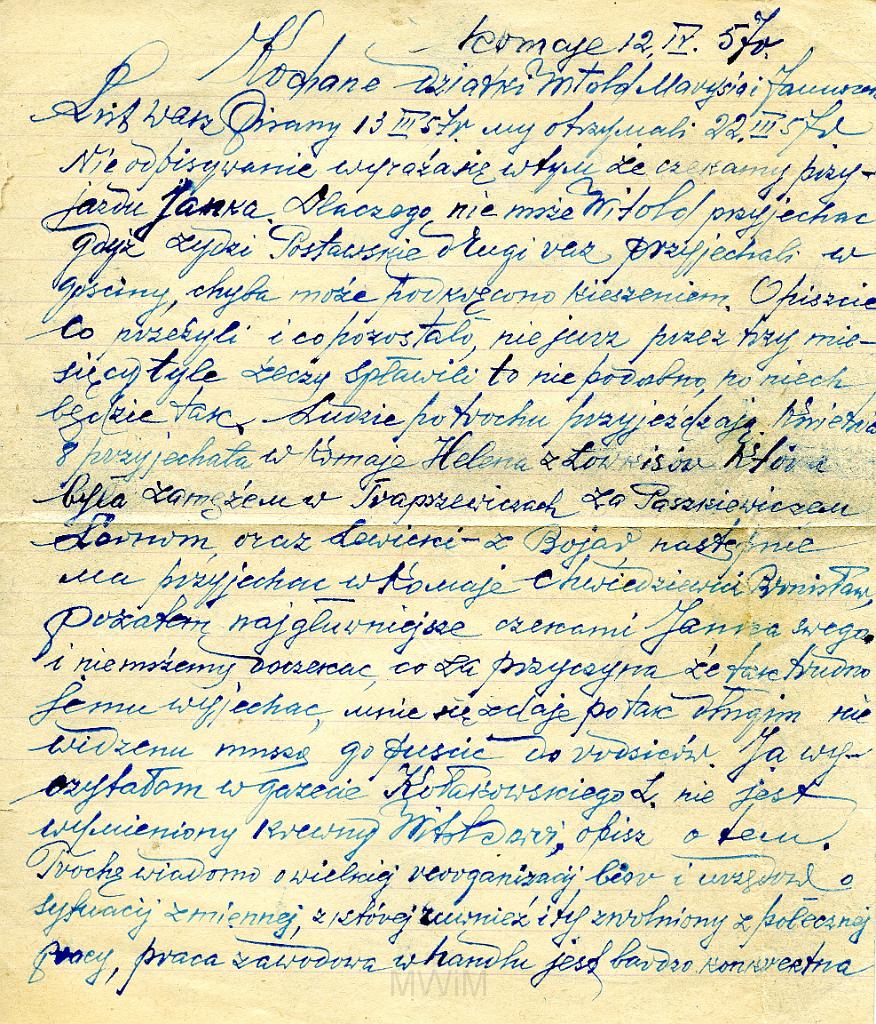 Komaje 12.IV. 57r.
Kochane dziatki Witold Marysia i Januszek
List wasz pisany 13 III 57r my otrzymali 22.III 57r
Nie odpisywanie wyraża się w tym że czekamy przy-
jazdu Janka. Dlaczego nie może Witold przyjechac
gdyż Żydzi Postawskie długi raz przyjechali w
gościny, chyba może podkręcono kieszeniem. Opiszcie
co przeżyli i co pozostało, nie jurz przez trzy mie-
sięcy tyle żeczy spławili to nie podobno, no niech
będzie tak. Ludzie potrochu przyjeżdżają. Kwietnia
8 przyjechała w Komaje Helena z Łowkisów która
była zamężem w Trapszewiczach za Paszkiewiczem
oraz Lewicki - z Bojar, następnie
ma przyjechac w Komaje Chwiedziewicz Bronisław,
pozatem najgłuwniejsze czekami Janka swego
i niemożemy doczekac, co za przyczyna że tak trudno
jemu wyjechac, mnie się zdaje po tak długim nie
widzenu muszą go puścić do rodziców. Ja wy-
czytałam w gazecie Kołakowskiego L. nie jest
wymieniony krewny Witoldowi, opisz o tem.
Trochę wiadomo o wielkiej reorganizacij biór i urzędów o
sytuacij zmiennej, z której rówmież i ty zwolniony z połecznej
pracy, praca zawodowa w handlu jest bardzo konkretna
MWiM